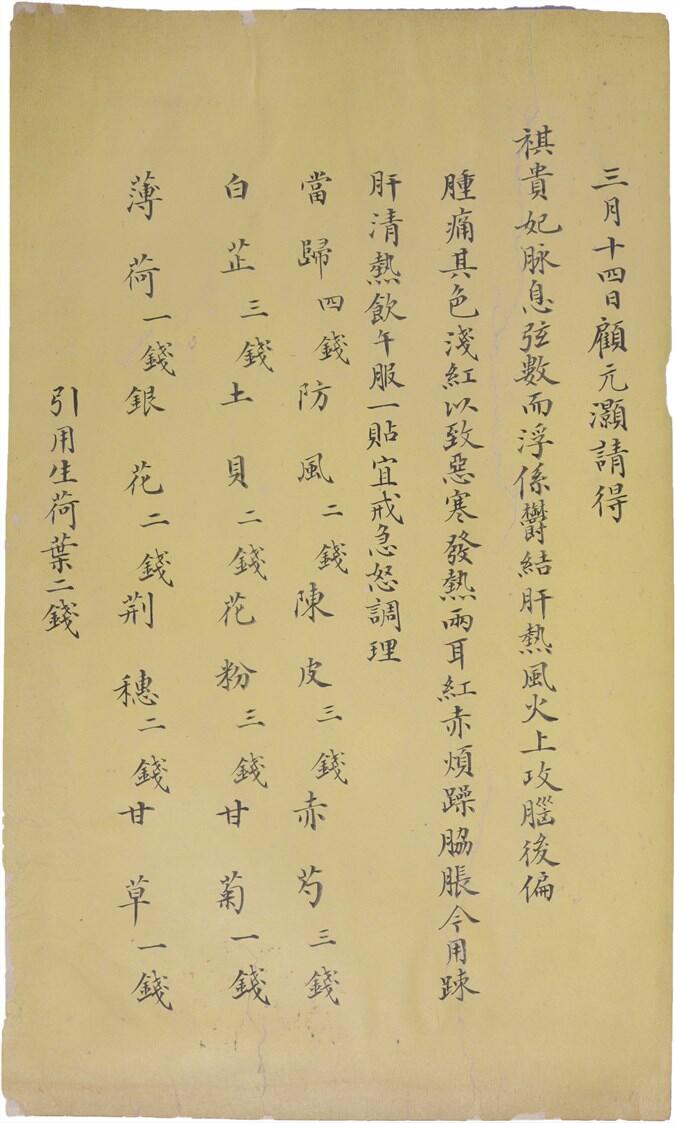 三月十四日顧元灝請得
祺貴妃脉息弦數而浮係欝結肝熱風火上攻腦後偏
腫痛其色淺紅以致惡寒發熱兩耳紅赤煩躁脇脹今用踈
肝清熱飲午服一貼宜戒急怒調理
當歸四錢防風二錢陳皮三錢赤芍三錢
白芷三錢土貝二錢花粉三錢甘菊一錢
薄荷一錢銀花二錢荆穗二錢甘草一錢
引用生荷葉二錢